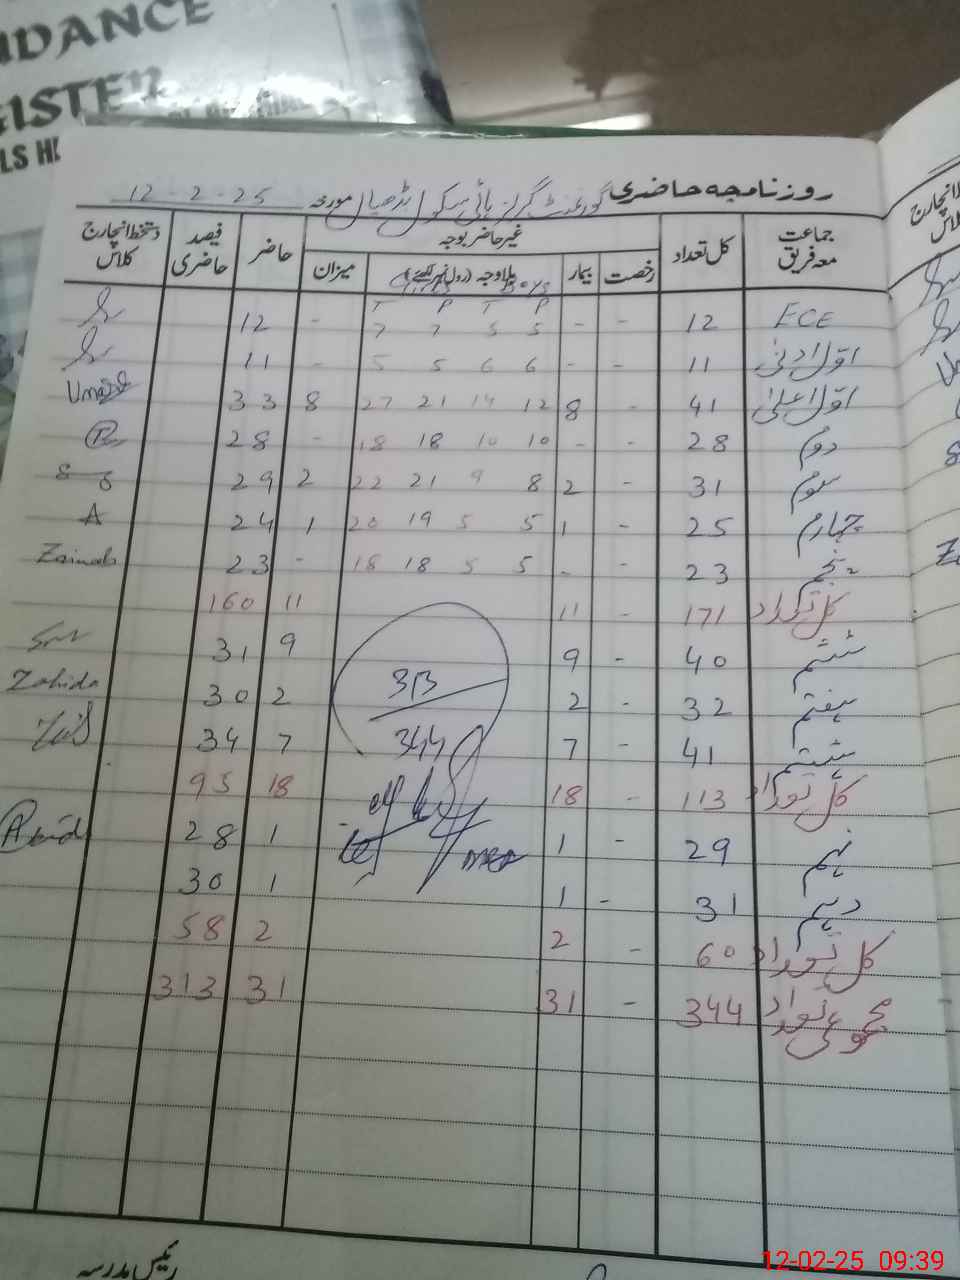 NDANCE
EISTER
LS HI
روزنامچہ حاضری گورنمنٹ گرلز ہائی سکول بڑھیال مورخہ 12-2-25
جماعت معہ فریق کل تعداد غیر حاضر بوجہ حاضر فیصد حاضری دستخط انچارج کلاس
رخصت بیمار بلاوجہ (رول نمبر لکھیئے) میزان
Boys
T P T P
ECE 12 - - 5 5 7 7 - 12
اول ادنیٰ 11 - - 6 6 5 5 - 11
اول اعلیٰ 41 - 8 12 14 21 27 8 33
دوم 28 - - 10 10 18 18 - 28
سوم 31 - 2 8 9 21 22 2 29
چہارم 25 - 1 5 5 19 20 1 24 A
پنجم 23 - - 5 5 18 18 - 23 Zainab
کل تعداد 171 - 11 11 160
ششم 40 - 9 9 31
ہفتم 32 - 2 2 30 Zahida
ہشتم 41 - 7 7 34
313
344
کل تعداد 113 - 18 18 95
نہم 29 - 1 1 28
دہم 31 - 1 1 30
کل تعداد 60 - 2 2 58
مجموعی تعداد 344 - 31 31 313
رئیس مدرسہ
12-02-25 09:39